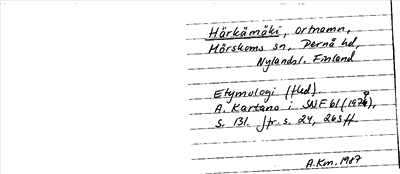 Härkämäki, ortnamn,
Mörskoms sn, Pernå hd,
Nylandsl. Finland
Etymologi (hld).
A. Kartano i SNF 61 (1976),
S. 131. Jfr. s. 24, 263 ff.
A.Km. 1987